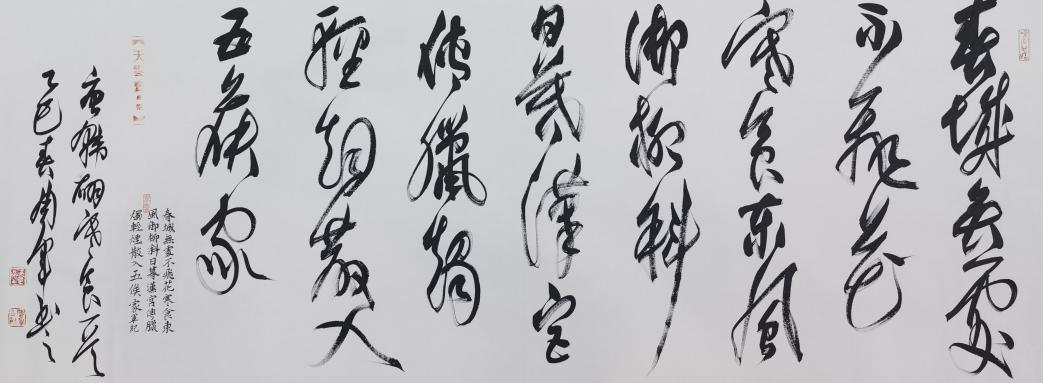 春城無處
不飛花
寒食東風
御柳斜
日暮漢宮
傳臘燭
輕煙散入
五侯家
春城無處不飛花寒食東
風御柳斜日暮漢宮傳臘
燭輕煙散入五侯家軍紀
唐韓翃寒食一首
乙巳春軍書